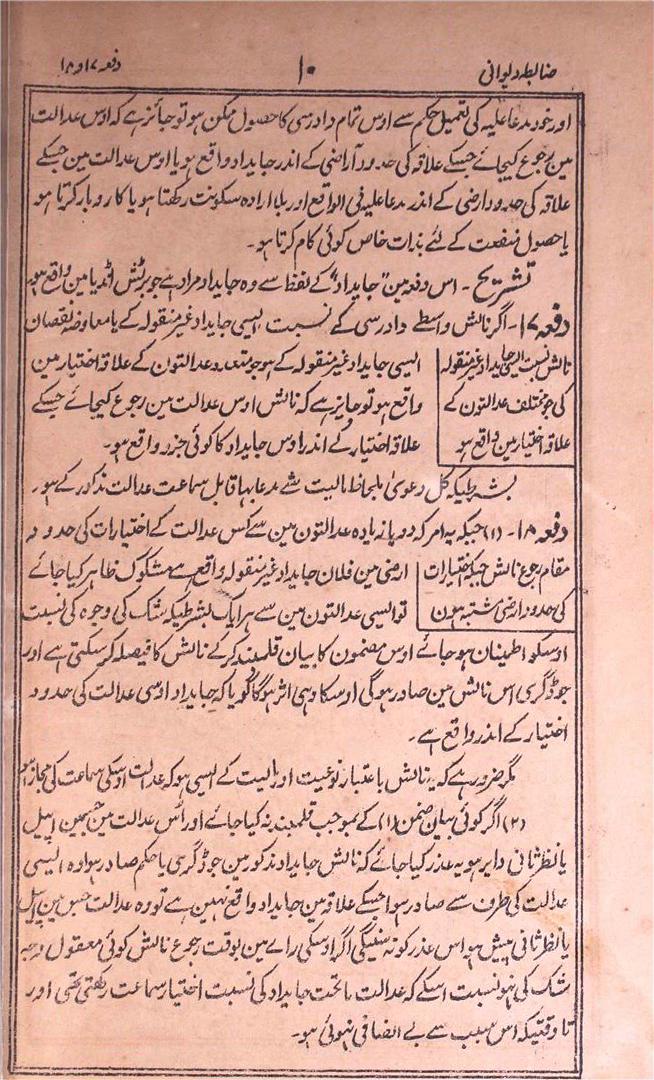 ضابطہ دیوانی
۱۰
دفعہ ۱۷ و ۱۸
اور خود مدعا علیہ کی تعمیل حکم سے اوس تمام دادرسی کا حصول ممکن ہو تو جائز ہے کہ اوس عدالت
مین رجوع کیجائے جسکے علاقہ کی حدود آراضی کے اندر جایداد واقع ہو یا اوس عدالت مین جسکے
علاقہ کی حدود ارضی کے اندر مدعا علیہ فی الواقع اور بلا ارادہ سکونت رکھتا ہو یا کاروبار کرتا ہو
یا حصول منفعت کے لئے بذات خاص کوئی کام کرتا ہو۔
تشریح ۔ اس دفعہ مین "جایداد" کے لفظ سے وہ جایداد مراد ہے جو برٹش انڈیا مین واقع ہو۔
دفعہ ۱۷۔ اگر نالش واسطے دادرسی کے نسبت ایسی جایداد غیر منقولہ کے یا معاوضہ نقصان
نالش نسبت ایسی جایداد غیر منقولہ
کی جو مختلف عدالتون کے
علاقہ اختیار مین واقع ہو
ایسی جایداد غیر منقولہ کے ہو جو متعدد عدالتون کے علاقہ اختیار مین
واقع ہو تو جایز ہے کہ نالش اوس عدالت مین رجوع کیجائے جسکے
علاقۂ اختیار کے اندر اوس جایداد کا کوئی جزو واقع ہو۔
بشرطیکہ کل دعویٰ بلحاظ مالیت شے مدعا بہا قابل سماعت عدالت مذکور کے ہو۔
دفعہ ۱۸۔ (۱) جبکہ یہ امر کہ دو یا زیادہ عدالتون مین سے کس عدالت کے اختیارات کی حدود
مقام رجوع نالش جبکہ اختیارات
کی حدود ارضی مشتبہ ہون
ارضی مین فلان جایداد غیر منقولہ واقع ہے مشکوک ظاہر کیا جائے
تو ایسی عدالتون مین سے ہر ایک بشرطیکہ شک کی وجوہ کی نسبت
اوسکو اطمینان ہو جائے اوس مضمون کا بیان قلمبند کر کے نالش کا فیصلہ کر سکتی ہے اور
جو ڈگری اس نالش مین صادر ہوگی اوسکا وہی اثر ہوگا گویا کہ جایداد اوسی عدالت کی حدود
اختیار کے اندر واقع ہے۔
مگر ضرور ہے کہ یہ نالش باعتبار نوعیت اور مالیت کے ایسی ہو کہ عدالت اوسکی سماعت کی مجاز ہو
(۲) اگر کوئی بیان ضمن (۱) کے بموجب قلمبند نہ کیا جائے اور اُس عدالت مین جسمین اپیل
یا نظر ثانی دایر ہو یہ عذر کیا جائے کہ نالش جایداد مذکور مین جو ڈگری یا حکم صادر ہوا وہ ایسی
عدالت کی طرف سے صادر ہوا جسکے علاقہ مین جایداد واقع نہین ہے تو وہ عدالت جس مین اپیل
یا نظر ثانی پیش ہو اس عذر کو نہ سنیگی اگر اوسکی راے مین بوقت رجوع نالش کوئی معقول وجہ
شک کی نہو نسبت اسکے کہ عدالت ماتحت جایداد کی نسبت اختیار سماعت رکھتی تھی اور
تا وقتیکہ اس سبب سے بے انصافی نہوئی ہو۔